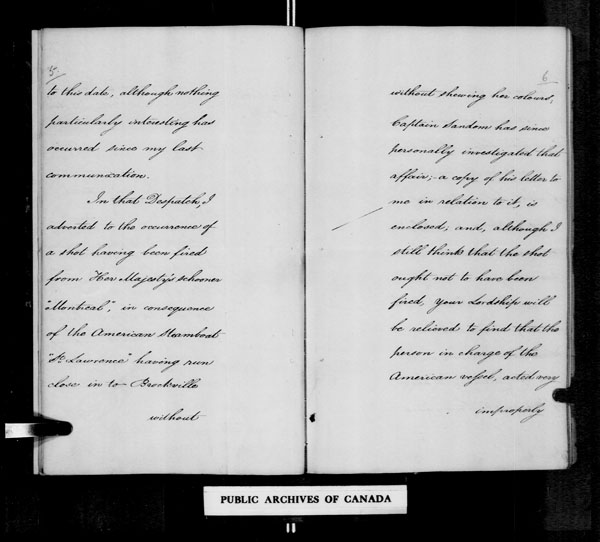 5.
to this date, although nothing
particularly interesting has
occurred since my last
communication.
In that Despatch, I
adverted to the occurrence of
a shot having been fired
from Her Majesty's schooner
"Montreal", in consequence
of the American Steamboat
"St. Lawrence" having run
close in to Brockville
without
6
without shewing her colours.
Captain Sandom has since
personally investigated that
affair;- a copy of his letter to
me in relation to it, is
enclosed; and, although I
still think that the shot
ought not to have been
fired, your Lordship will
be relieved to find that the
person in charge of the
American vessel, acted very
improperly
PUBLIC ARCHIVES OF CANADA